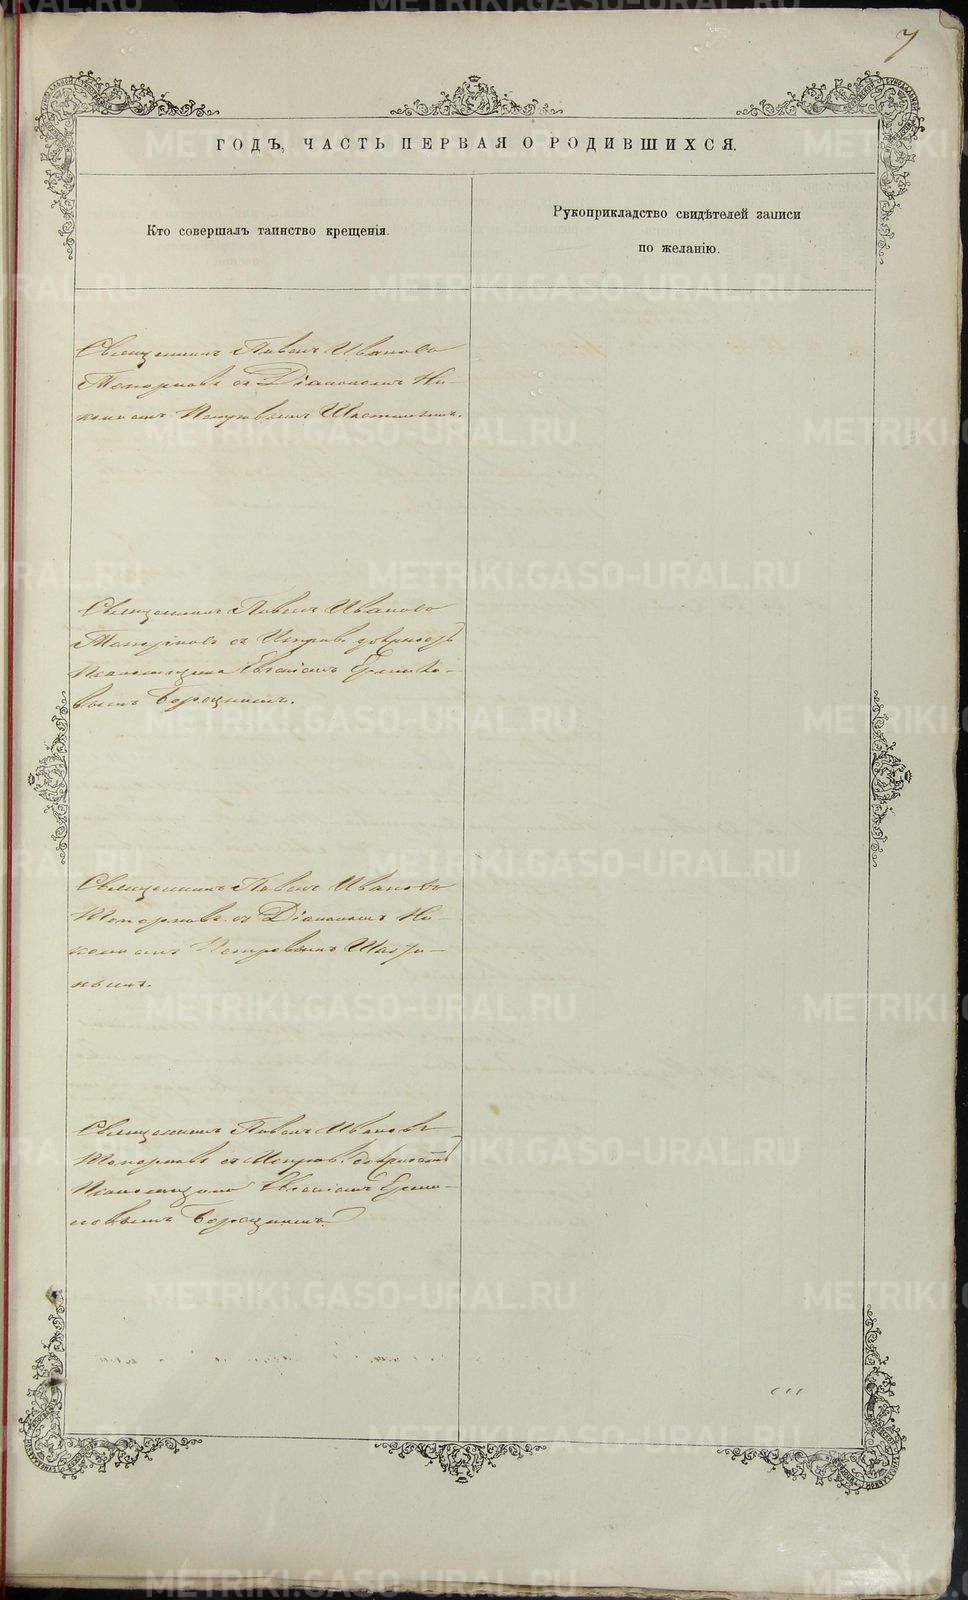 7
ГОДЪ, ЧАСТЬ ПЕРВАЯ О РОДИВШИХСЯ.
Кто совершалъ таинство крещенія.
Рукоприкладство свидѣтелей записи
по желанію.
Священникъ Павелъ Ивановъ
Топорковъ съ Діакономъ Ни-
кономъ Петровымъ
Священникъ Павелъ Ивановъ
Топорковъ съ Исправ. должность
Псаломщика Евгеніемъ
вымъ
Священникъ Павелъ Ивановъ
Топорковъ съ Діакономъ Ни-
кономъ Петровымъ
нымъ.
Священникъ Павелъ Ивановъ
Топорковъ съ Исправ. должность
Псаломщика Евгеніемъ
METRIKI.GASO-URAL.RU